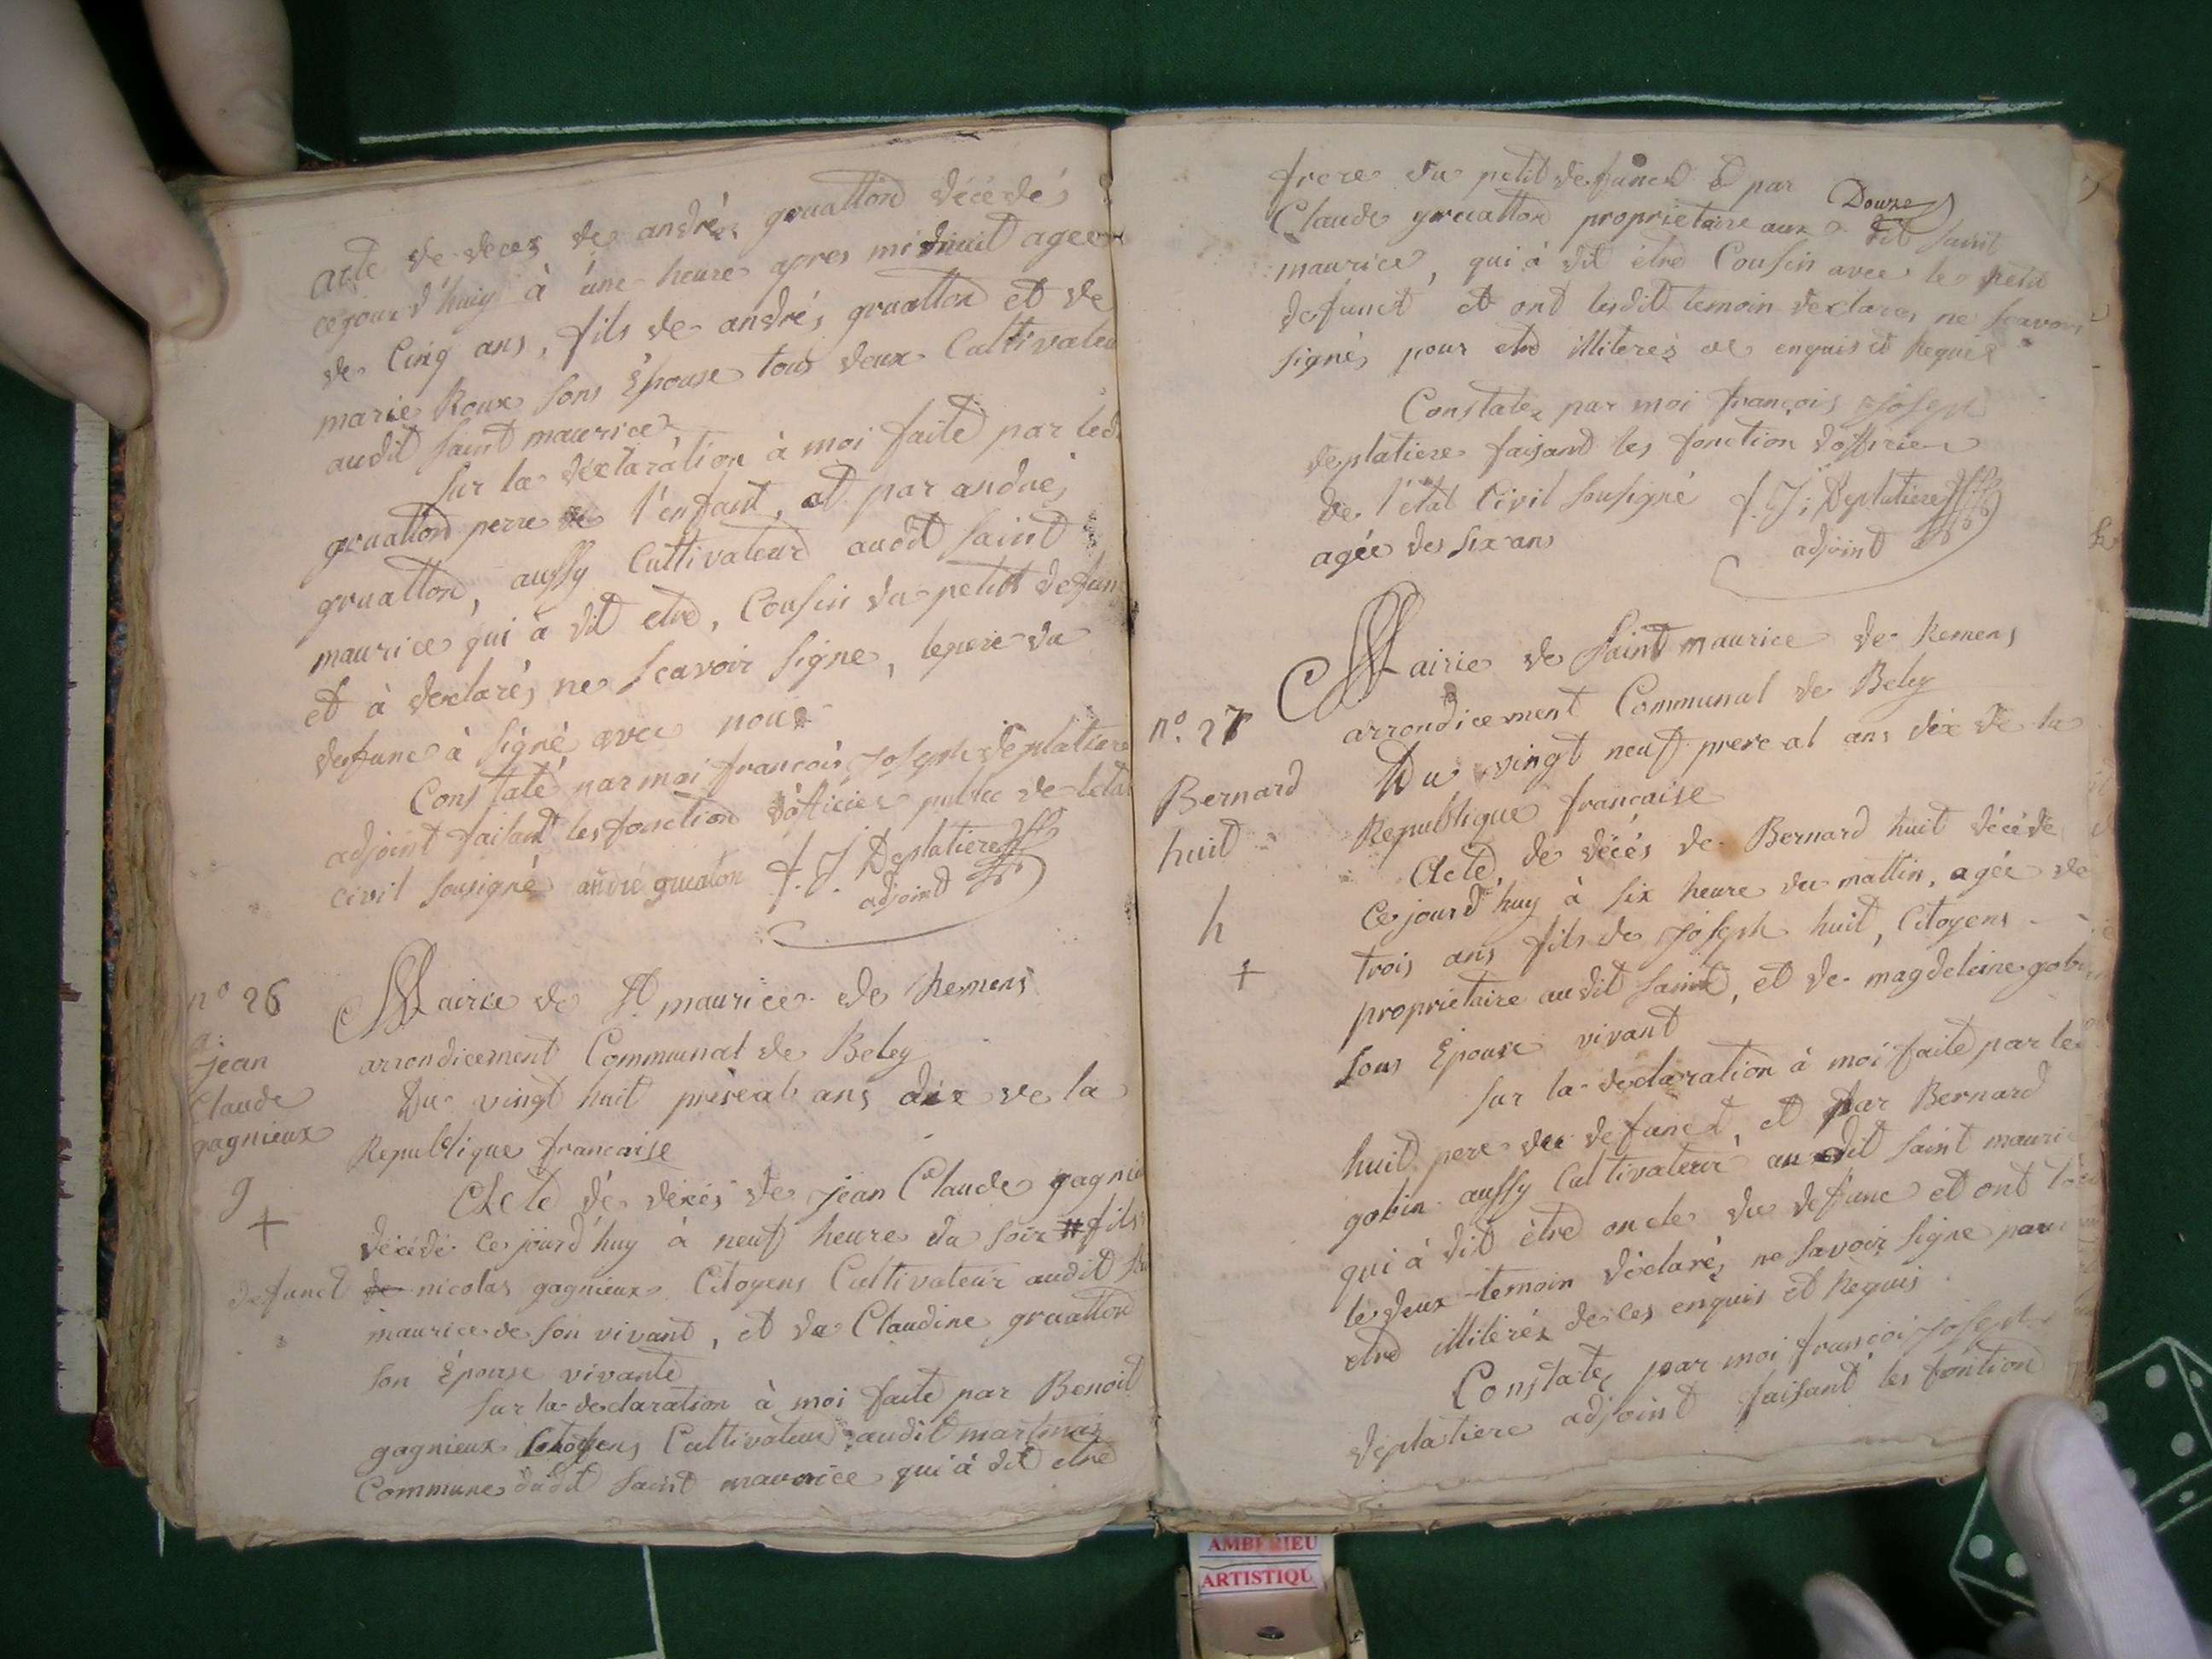 acte de deces de andrés gruatton décédé
cejourd'huy à une heure apres midnuit agee
de Cinq ans, fils de andrés gruatton et de
marie Roux sons Epouse tous deux Cultivateu
audit saint maurice
sur la déxlaration à moi faite par led
gruatton perre de l'enfant, et par andrés
gruatton, aussy Cultivateur audit saint
maurice qui à dit etre, Cousin du petit defun
et à dexlarés ne scavoir signe, le pere du
defunc à signé avec nous
Constaté par moi francois joseph deplatiere
adjoint faisant les fonction d'officier public de letat
civil sousigné andré gruaton f. J. Deplatiere
adjoint
n° 26
jean
Claude
gagnieux
g
+
Mairie de St maurice de Remens
arrondicement Communal de Beley
Du vingt huit preréal ans dix de la
Republique francaise
Acte de déxés de jean Claude gagnie
décédé ce jourd'huy à neuf heure du soir # fils
defunct de nicolas gagnieux Citoyens Cultivateur audit st
maurice de son vivant, et de Claudine gruatton
son Epouse vivante
sur la declaration à moi faite par Benoit
gagnieux Citoyens Cultivateur audit martinaz
Commune dudit saint maurice qui à dit etre
frere du petit defunct & par
Claude gruatton proprietaire aux Douze dit saint
maurice, qui à dit étre Cousin avec le petit
defunct et ont lesdit temoin dexlares ne scavoir
signés pour etre illiterés de enquis et Requis
Constatez par moi françois joseph
deplatiere faisant les fonction d'officier
de l'état Civil sousigné f. J. Deplatiere
agée des six ans adjoint
Mairie de Saint maurice de Remens
n° 27
arrondicement Communal de Beley
Bernard
huit
h
+
Du vingt neuf prereal ans dix de la
Republique francaise
Acte de décés de Bernard huit décédé
Ce jourd'huy à six heure du mattin, agée de
trois ans fils de joseph huit, Citoyens
proprietaire audit saint, et de magdeleine gobin
sons Epouse vivant
sur la declaration à moi faite par led
huit pere du defunct, et par Bernard
gobin aussy Cultivateur audit saint mauric
qui à dit être oncle du defunc et ont
les deux temoin déclarés ne savoir signe pour
etre illiterés de ces enquis et Requis
Constatez par moi françoi joseph
deplatiere adjoint faisant les fontion
AMBERIEU
ARTISTIQU